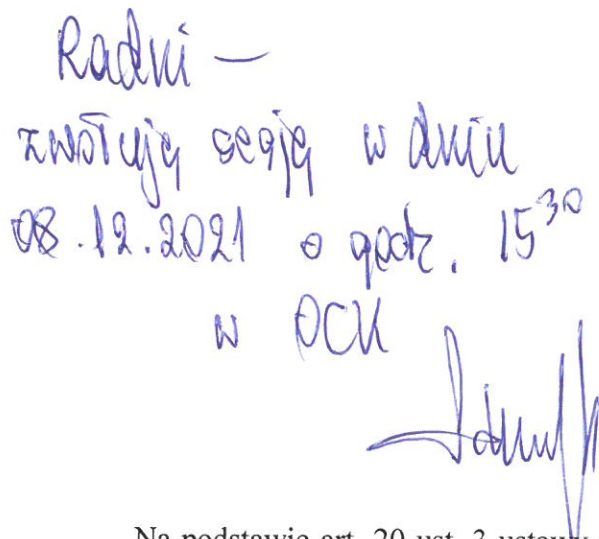 Radni —
zwołuję sesję w dniu
08.12.2021 o godz. 15³⁰
w OCK
Na podstawie art. 20 ust. 3 ustawy